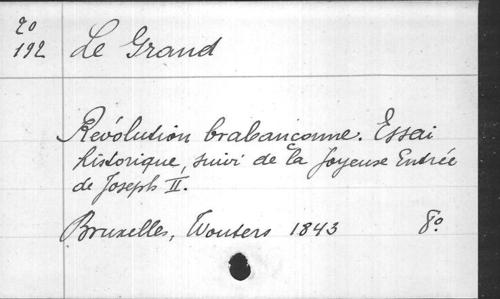 20
192 Le Grand
Révolution brabançonne. Essai
historique, suivi de la Joyeuse Entrée
de Joseph II.
Bruxelles, Wouters 1843 8º